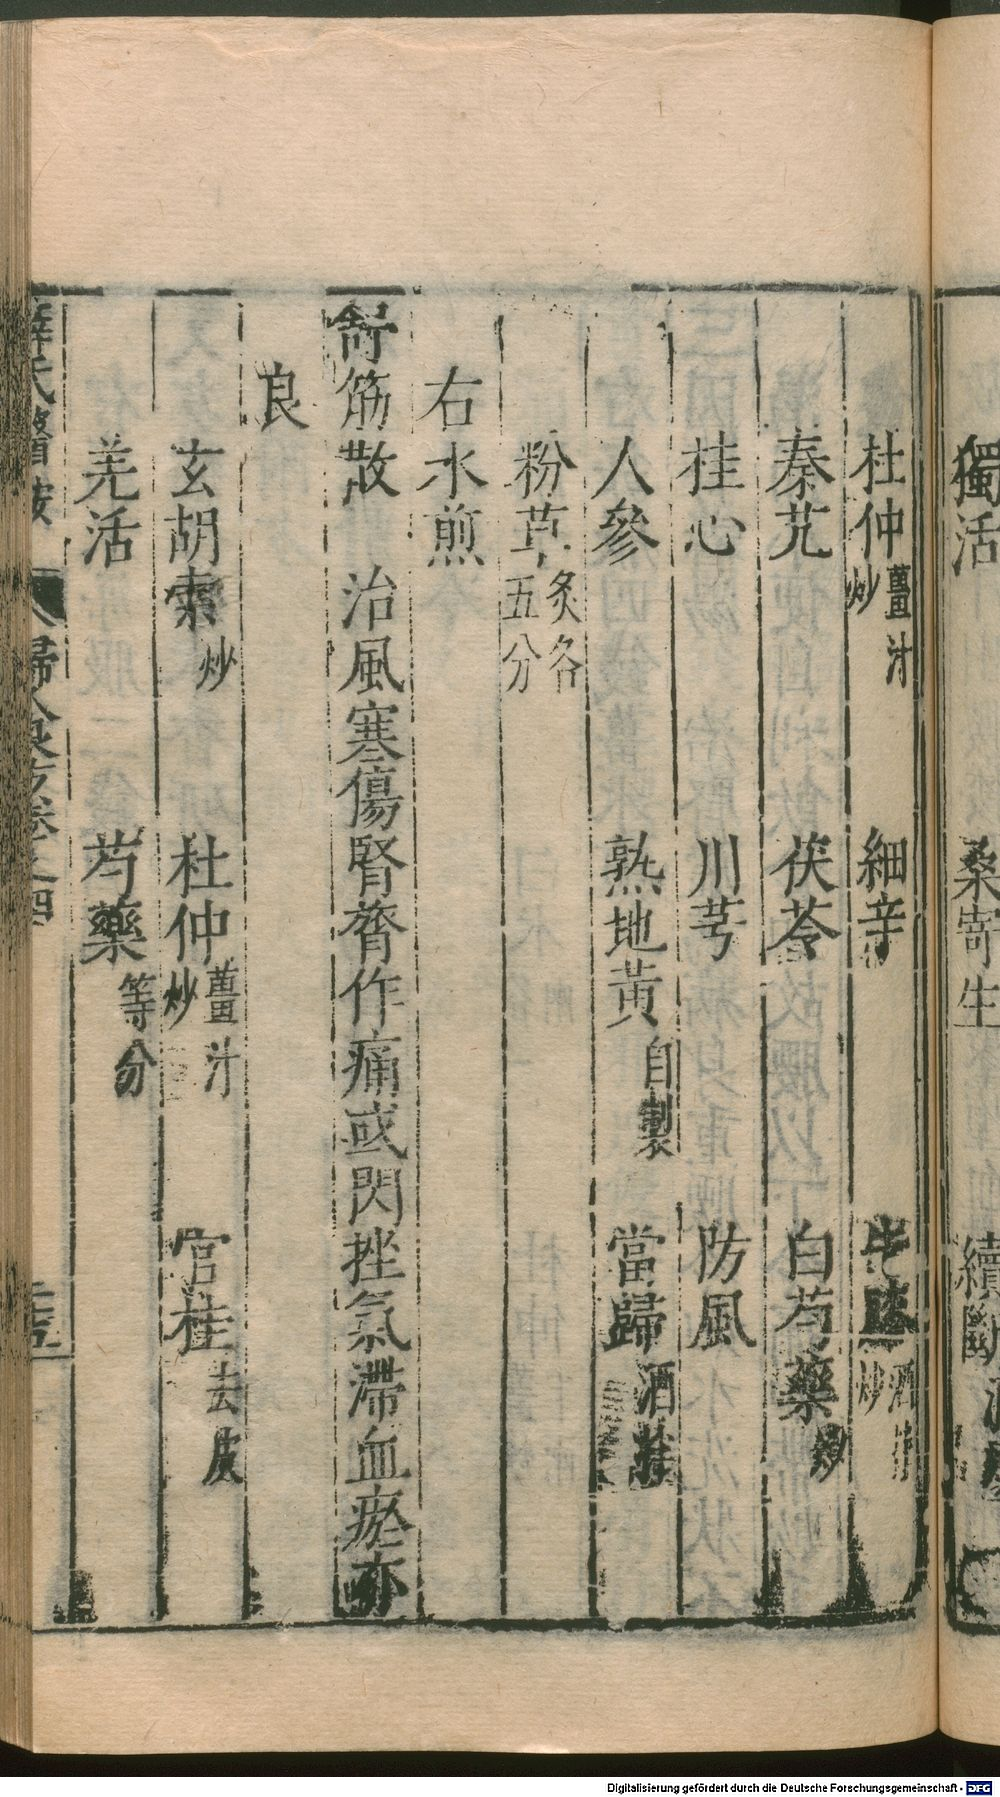 獨活 桑寄生 續斷酒
杜仲薑汁炒 細辛 牛膝酒拌炒
秦艽 茯苓 白芍藥炒
桂心 川芎 防風
人參 熟地黃自製 當歸酒拌
粉草炙各五分
右水煎
舒筋散 治風寒傷腎膂作痛或閃挫氣滯血瘀亦
良
玄胡索炒 杜仲薑汁炒 官桂去皮
羌活 芍藥等分
薛氏醫按 婦人良方卷之四 二十五
Digitalisierung gefördert durch die Deutsche Forschungsgemeinschaft - DFG